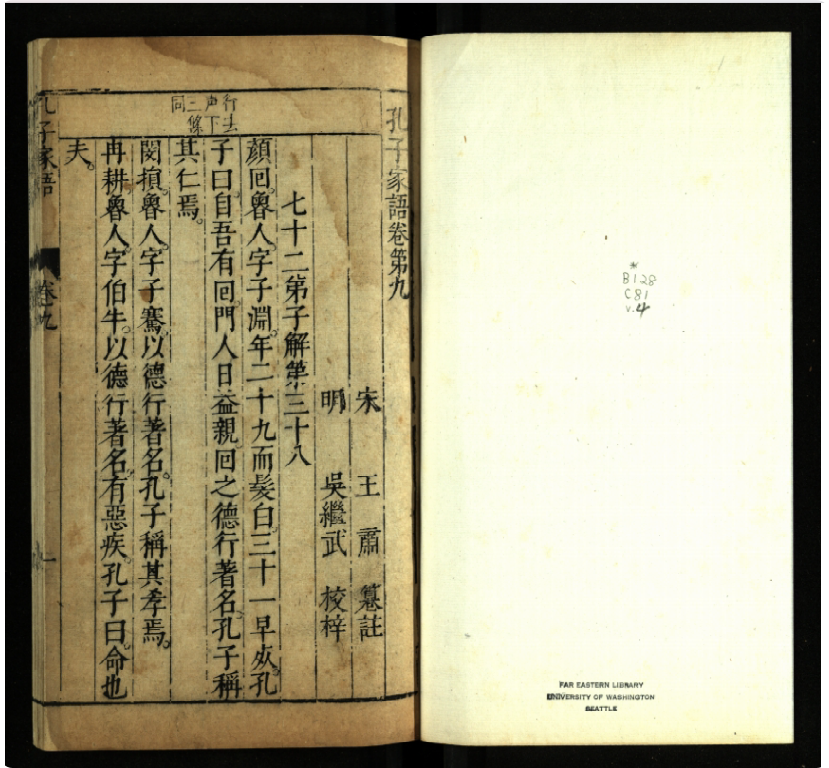 孔子家語卷第九
宋 王肅 纂註
明 吳繼武 校梓
七十二弟子解第三十八
顏回。魯人。字子淵。年二十九而髮白。三十一早死。孔
子曰。自吾有回。門人日益親。回之德行著名。孔子稱
其仁焉。
閔損。魯人。字子騫。以德行著名。孔子稱其孝焉。
冉耕。魯人。字伯牛。以德行著名。有惡疾。孔子曰。命也
夫。
行去
声下
二條
同
孔子家語
卷九
一
*
B128
C81
v.4
FAR EASTERN LIBRARY
UNIVERSITY OF WASHINGTON
SEATTLE